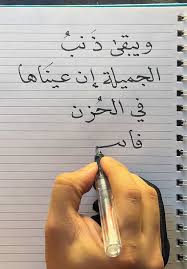 ويبقى ذَنبُ
الجميلة إن عينَاها
في الحُزن